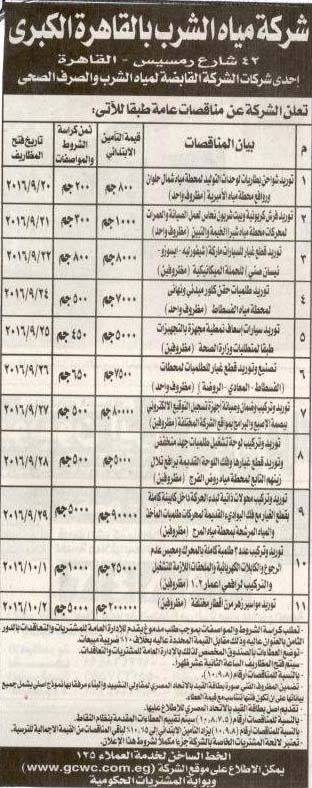 شركة مياه الشرب بالقاهرة الكبرى
٤٢ شارع رمسيس - القاهرة
إحدى شركات الشركة القابضة لمياه الشرب والصرف الصحى
تعلن الشركة عن مناقصات عامة طبقا للآتى:
م بيان المناقصات قيمة التأمين الابتدائى ثمن كراسة الشروط والمواصفات تاريخ فتح المظاريف
١ توريد شواحن بطاريات لوحدات التوليد لمحطة مياه شمال حلوان وروافع محطة مياه الأميرية (مظروف واحد) ٨٠٠ جم ٢٠٠ جم ٢٠١٦/٩/٢٠
٢ توريد فرش كربونية وبيت شربون نحاس لعمل الصيانة والعمرات لمحركات محطة مياه شبرا الخيمة والتبين (مظروف واحد) ١٠٠٠ جم ٣٠٠ جم ٢٠١٦/٩/٢١
٣ توريد قطع غيار للسيارات ماركة (شيفورليه - ايسوزو - نيسان صنى) للحملة الميكانيكية (مظروفين) ٨٠٠٠ جم ٨٠٠ جم ٢٠١٦/٩/٢٢
٤ توريد طلمبات حقن كلور مبدئى ونهائى لمحطة مياه الفسطاط (مظروف واحد) ٧٠٠٠ جم ٥٠٠ جم ٢٠١٦/٩/٢٤
٥ توريد سيارات إسعاف نمطية مجهزة بالتجهيزات طبقا لمتطلبات وزارة الصحة (مظروفين) ٥٠٠٠ جم ٤٥٠ جم ٢٠١٦/٩/٢٥
٦ تصنيع وتوريد قطع غيار للطلمبات لمحطات الفسطاط - المعادى - الروضة (مظروف واحد) ٧٥٠٠ جم ٦٥٠ جم ٢٠١٦/٩/٢٦
٧ توريد وتركيب وضمان وصيانة أجهزة تسجيل التوقيع الالكترونى ببصمة الإصبع والبرامج بمواقع الشركة المختلفة (مظروفين) ٨٠٠٠٠ جم ٥٠٠ جم ٢٠١٦/٩/٢٧
٨ توريد وتركيب لوحة تشغيل طلمبات جهد منخفض وتوريد قطع غيارها وفك اللوحة القديمة لرافع تلال زينهم التابع لمحطة مياه روض الفرج (مظروفين) ٥٠٠ جم ٢٠١٦/٩/٢٨
٩ توريد وتركيب محولات ذاتية لبدء الحركة داخل كابينة كاملة بقطع الغيار مع فك البوادىء القديمة لمحركات طلمبات المأخذ والمياه المرشحة بمحطة مياه المرج (مظروفين) ٩٠٠٠٠ جم ٥٠٠٠ جم ٢٠١٦/٩/٢٩
١٠ توريد وتركيب عدد ٢ طلمبة كاملة بالمحرك ومحبس عدم الرجوع والكابلات الكهربائية والملحقات اللازمة للتشغيل والتركيب لرافعى اعمار ١،٢ (مظروفين) ٢٥٠٠٠ جم ١٠٠٠ جم ٢٠١٦/١٠/١
١١ توريد مواسير زهر مرن أقطار مختلفة (مظروفين) ٢٠٠٠٠٠ جم ٥٠٠٠ جم ٢٠١٦/١٠/٢
- تطلب كراسة الشروط والمواصفات بموجب طلب مدموغ يقدم للإدارة العامة للمشتريات والتعاقدات بالدور الثامن بالعنوان عاليه وذلك مقابل القيمة المحددة عاليه بخلاف ١٠٪ ضريبة مبيعات.
- توضع العطاءات بالصندوق المخصص لذلك بالإدارة العامة للمشتريات والتعاقدات.
- سيتم فتح المظاريف الساعة الثانية عشر ظهرا.
- بالنسبة للمناقصات أرقام (١٠،٩،٨)
تضمين المظروف الفنى صورة بطاقة القيد بالاتحاد المصرى لمقاولى التشييد والبناء
- تقديم أصل بطاقة القيد بالاتحاد المصرى للاطلاع عليها.
- بالنسبة للمناقصات أرقام (١٠،٨،٧،٥) سيتم تقييم العطاءات المقدمة بنظام النقاط.
- تعتبر لائحة المشتريات الخاصة بالشركة جزءا مكملا لشروط هذا الإعلان.
الخط الساخن لخدمة العملاء ١٢٥
يمكن الاطلاع على موقع الشركة (www.gcwc.com.eg)
وبوابة المشتريات الحكومية